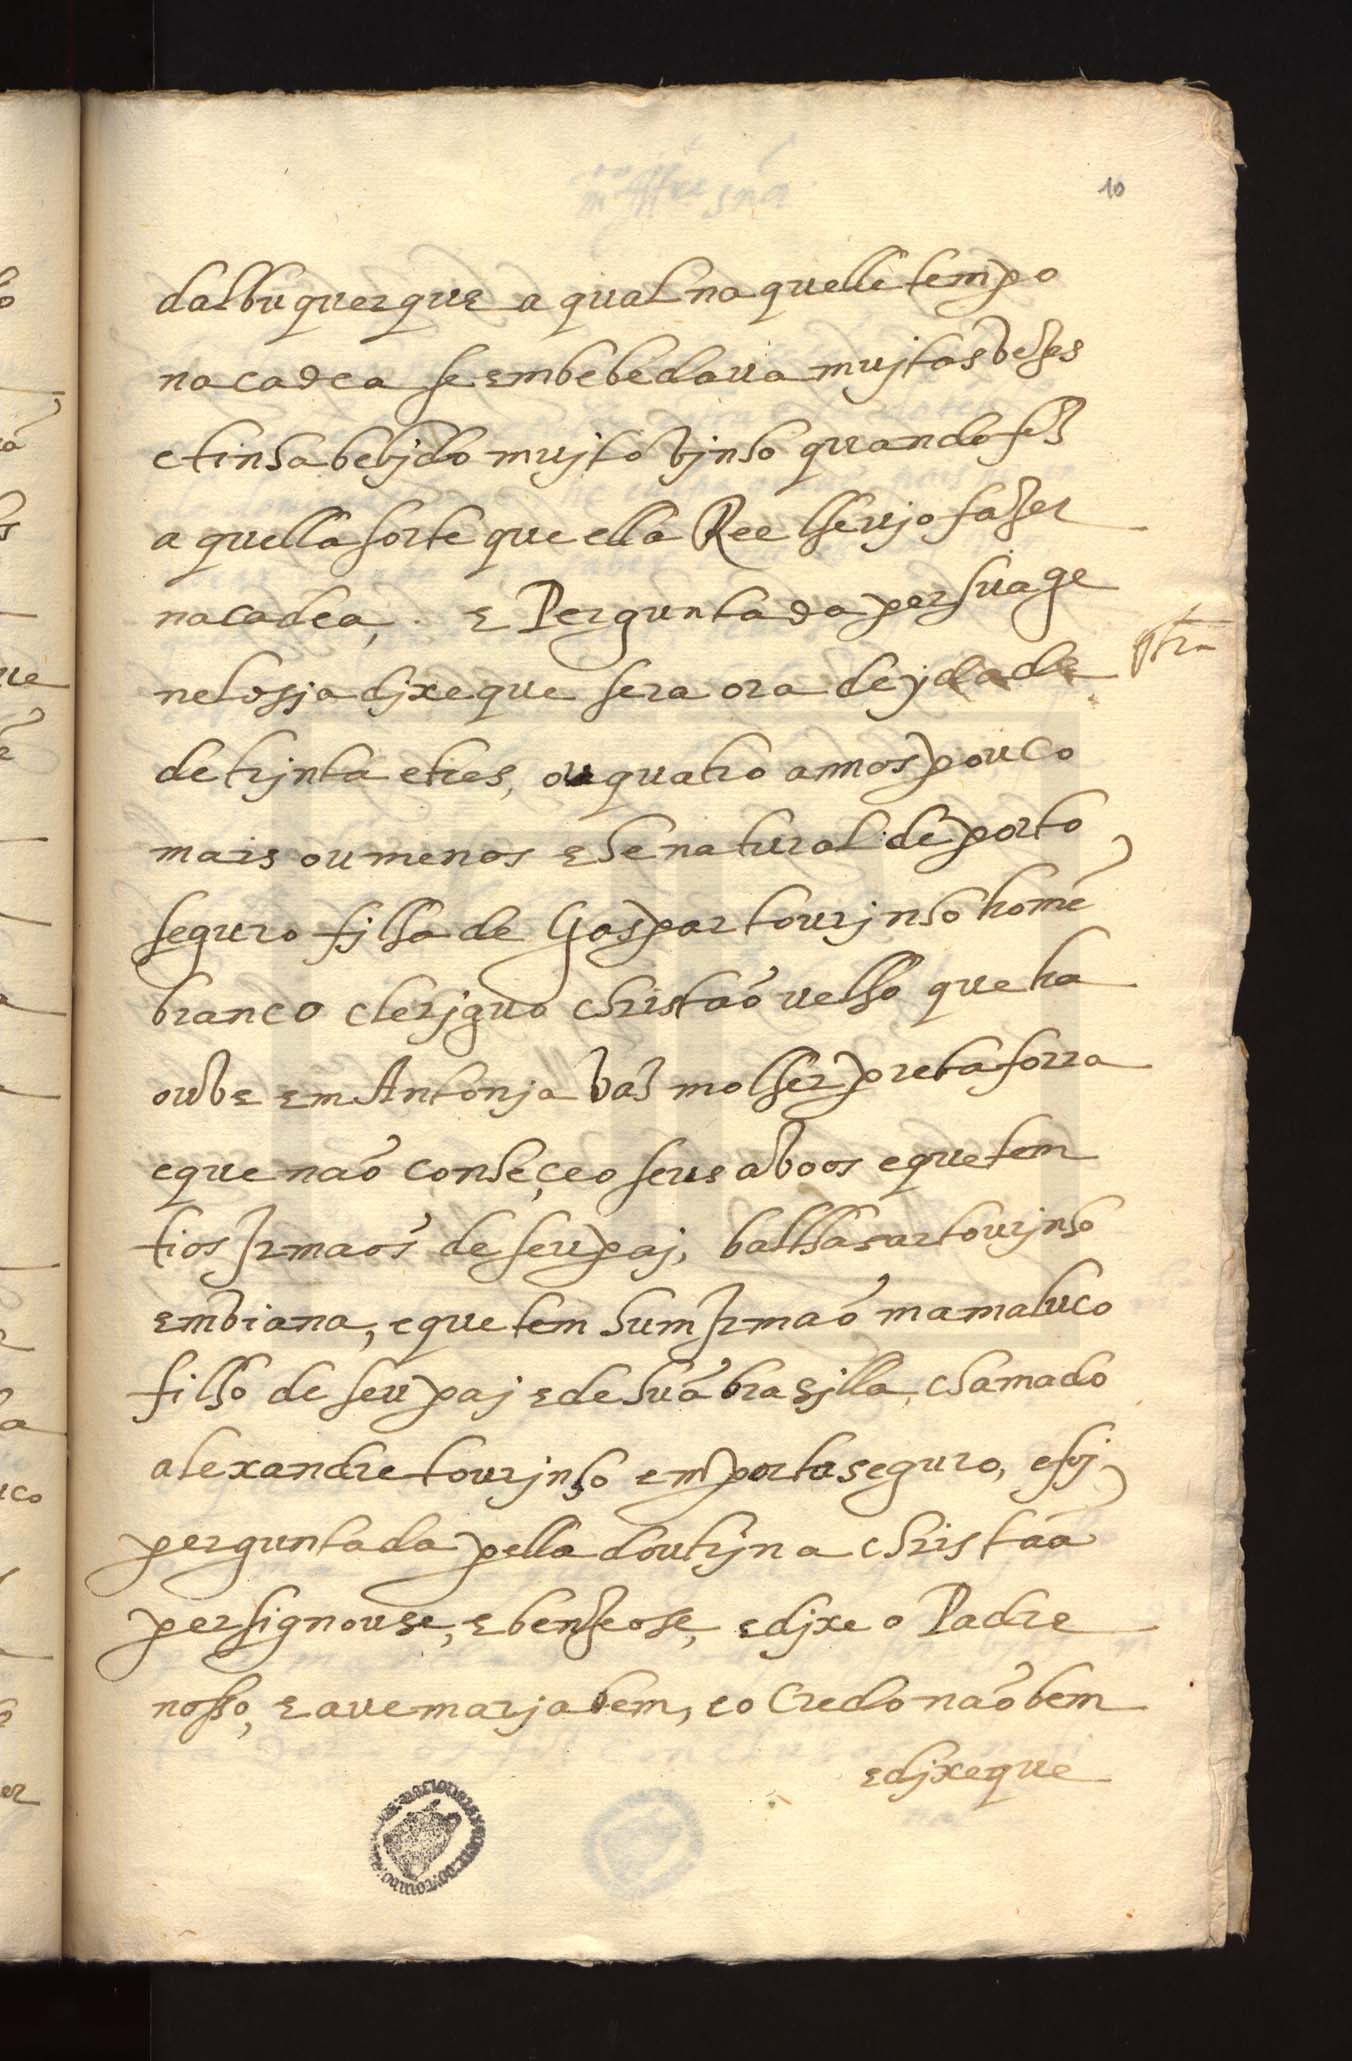 10
dalbuquerque a qual naquelle tempo
na cadea se embebedava mujtas vezes
e tinha bebjdo mujto vjnho quando fez
aquella sorte que ella Ree lhe vjo fazer
na cadea, e Perguntada per sua ge
nelosja djxe que sera ora de ydade
de trjnta e tres, ou quatro annos pouco
mais ou menos e he natural de porto
seguro fjlha de Gaspar tourjnho homẽ
branco clerjguo christaõ velho que ha
ouve em Antonja vaz molher preta forra
e que naõ conheçeo seus avoos e que tem
tios Irmaõs de seu paj, balthasar tourjnho
em viana, e que tem hum Irmaõ mamaluco
filho de seu paj e de huã brasjlla, chamado
alexandre tourjnho em porto seguro, e foj
perguntada pella doutrjna christaã
persignouse, e benzeose, e djxe o Padre
nosso, e ave marja bem, e o Credo naõ bem
e djxe que